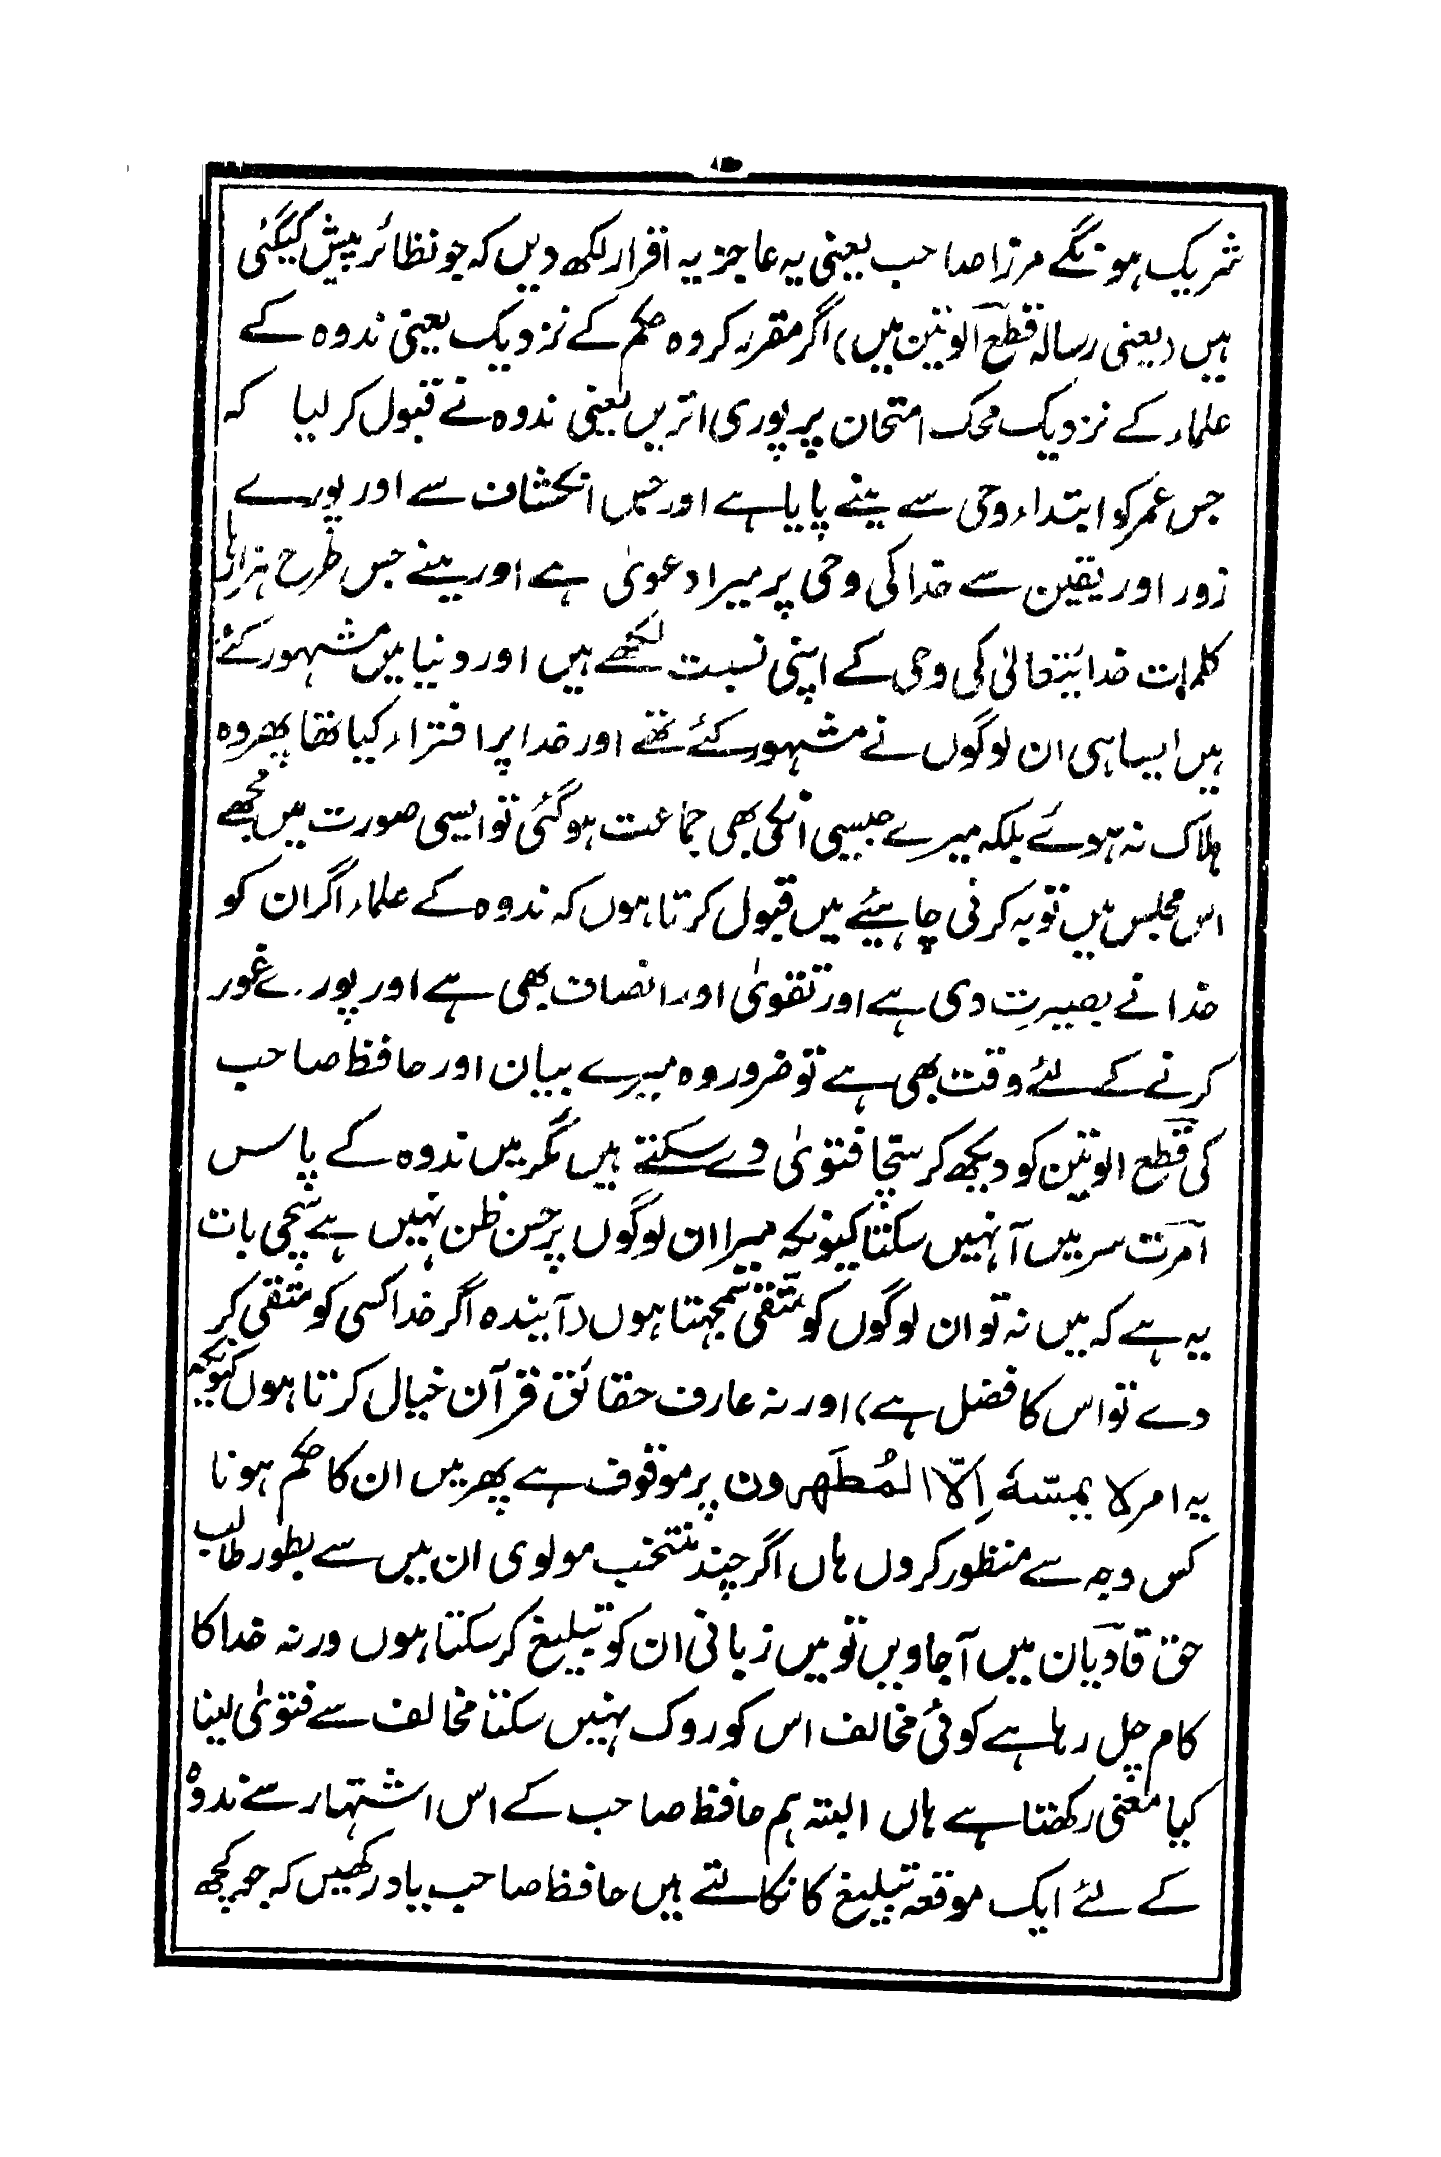 شریک ہونگے مرزا صاحب یعنی یہ عاجز یہ اقرار لکھ دیں کہ جو نظائر پیش کیگئی
ہیں (یعنی رسالہ قطع الوتین میں) اگر مقرر کروہ حکم کے نزدیک یعنی ندوہ کے
علماء کے نزدیک محک امتحان پر پوری اتریں یعنی ندوہ نے قبول کر لیا کہ
جس عمر کو ابتداء وحی سے مینے پایا ہے اور جس انکشاف سے اور پورے
زور اور یقین سے خدا کی وحی پر میرا دعویٰ ہے اور مینے جس طرح ہزارہا
کلمات خدایتعالیٰ کی وحی کے اپنی نسبت لکھے ہیں اور دنیا میں مشہور کئے
ہیں ایسا ہی ان لوگوں نے مشہور کئے تھے اور خدا پر افتراء کیا تھا پھر وہ
ہلاک نہ ہوئے بلکہ میرے جیسی انکی بھی جماعت ہوگئی تو ایسی صورت میں مجھے
اس مجلس میں توبہ کرنی چاہیئے میں قبول کرتا ہوں کہ ندوہ کے علماء اگر ان کو
خدا نے بصیرت دی ہے اور تقویٰ اور انصاف بھی ہے اور پورے غور
کرنے کے لئے وقت بھی ہے تو ضرور وہ میرے بیان اور حافظ صاحب
کی قطع الوتین کو دیکھ کر سچا فتویٰ دے سکتے ہیں مگر میں ندوہ کے پاس
امرت سر میں آ نہیں سکتا کیونکہ میرا ان لوگوں پر حسن ظن نہیں ہے سچی بات
یہ ہے کہ میں نہ تو ان لوگوں کو متقی سمجہتا ہوں (آیندہ اگر خدا کسی کو متقی کر
دے تو اس کا فضل ہے) اور نہ عارف حقائق قرآن خیال کرتا ہوں کیونکہ
یہ امر لا یمسّہٗ اِلّا المُطَھرون پر موقوف ہے پھر میں ان کا حکم ہونا
کس وجہ سے منظور کروں ہاں اگر چند منتخب مولوی ان میں سے بطور طالب
حق قادیان میں آجاویں تو میں زبانی ان کو تبلیغ کر سکتا ہوں ورنہ خدا کا
کام چل رہا ہے کوئی مخالف اس کو روک نہیں سکتا مخالف سے فتویٰ لینا
کیا معنی رکھتا ہے ہاں البتہ ہم حافظ صاحب کے اس اشتہار سے ندوہ
کے لئے ایک موقعہ تبلیغ کا نکالتے ہیں حافظ صاحب یاد رکھیں کہ جو کچھ